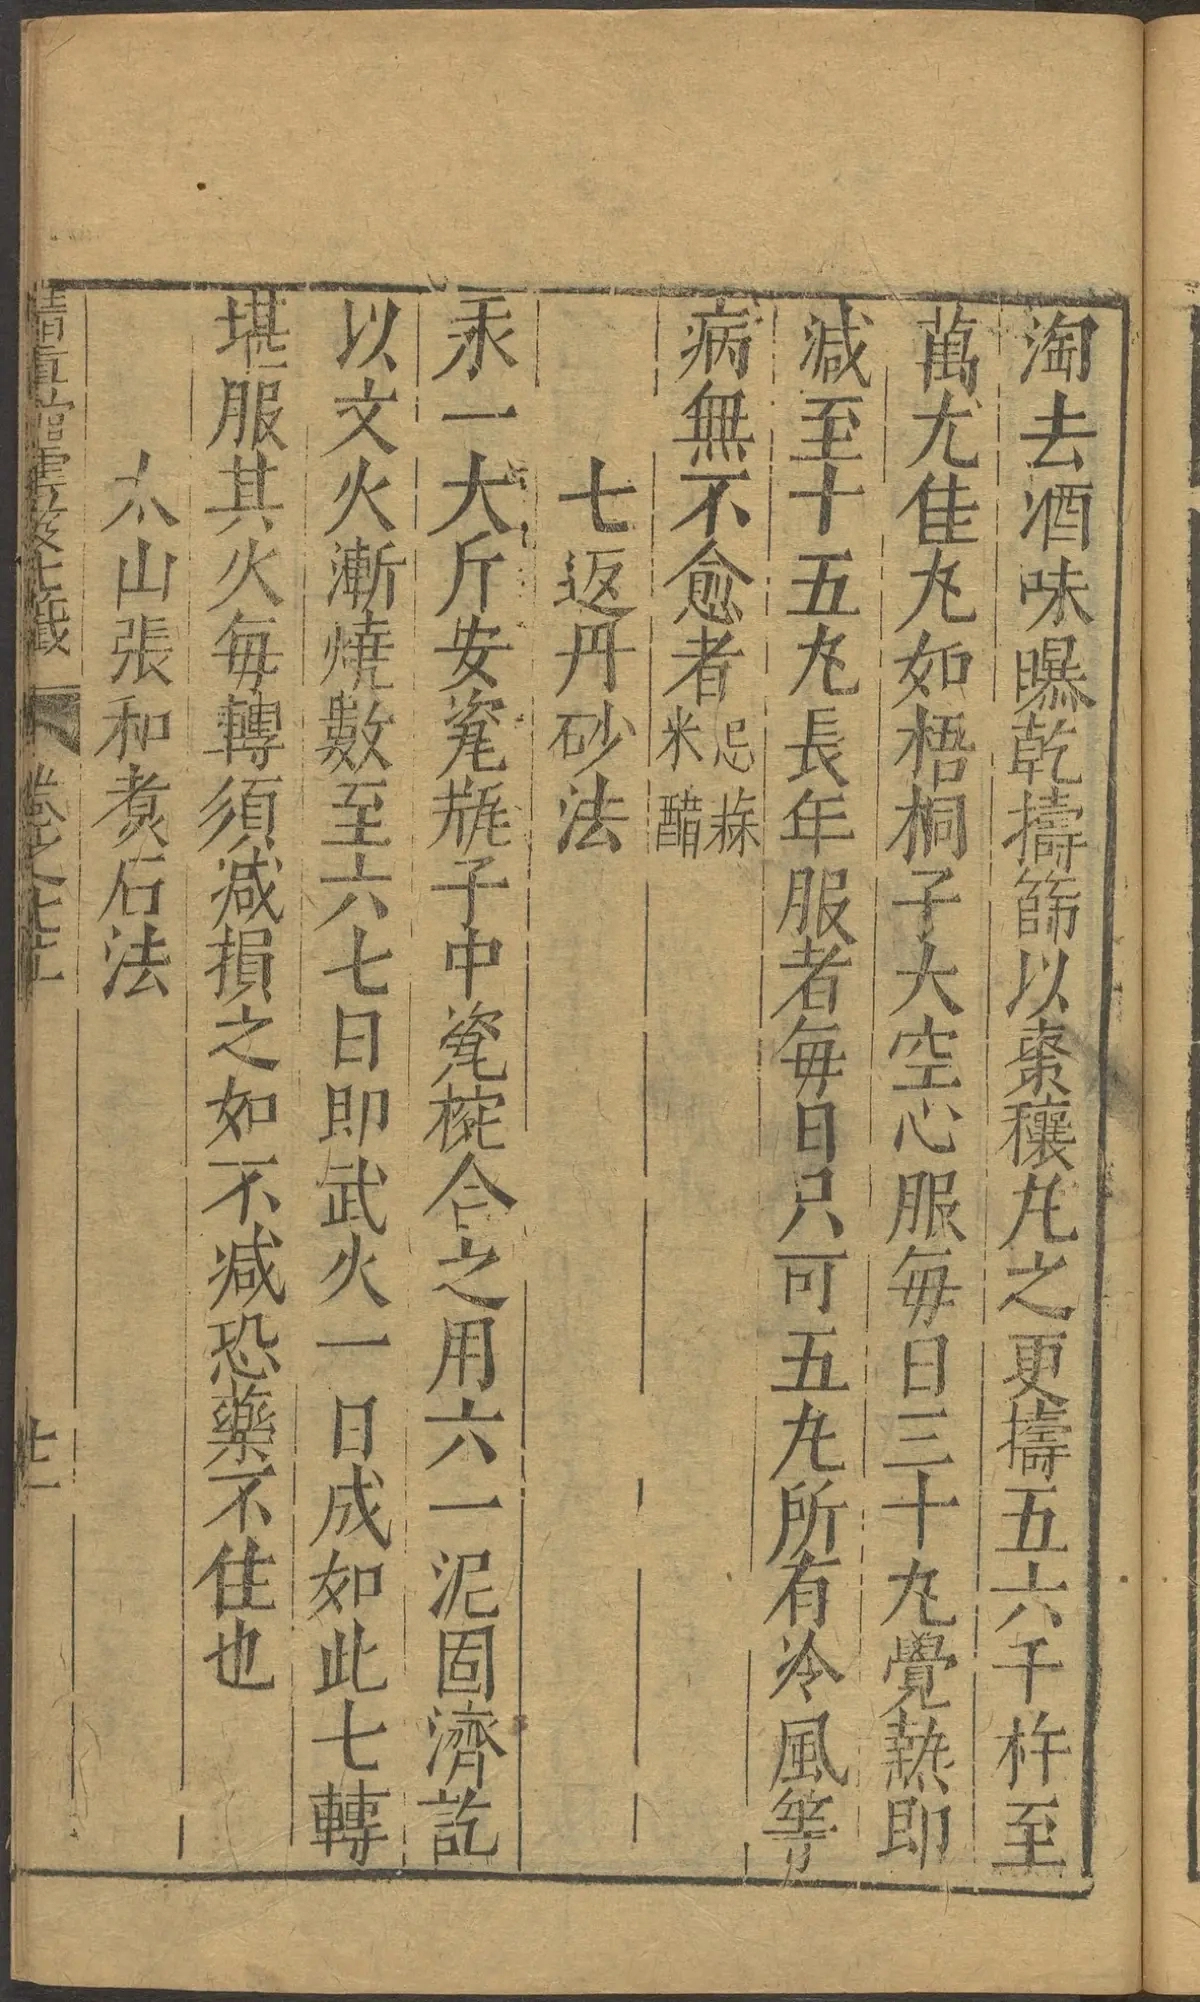 淘去酒味曝乾擣篩以棗穰丸之更擣五六千杵至
萬尤佳丸如梧桐子大空心服每日三十丸覺熱即
減至十五丸長年服者每日只可五丸所有冷風等
病無不愈者忌蒜米醋
七返丹砂法
汞一大斤安瓷瓶子中瓷椀合之用六一泥固濟訖
以文火漸燒數至六七日即武火一日成如此七轉
堪服其火每轉須减損之如不减恐藥不住也
太山張和煮石法
清真館雲笈七籤 卷之七十 廿一